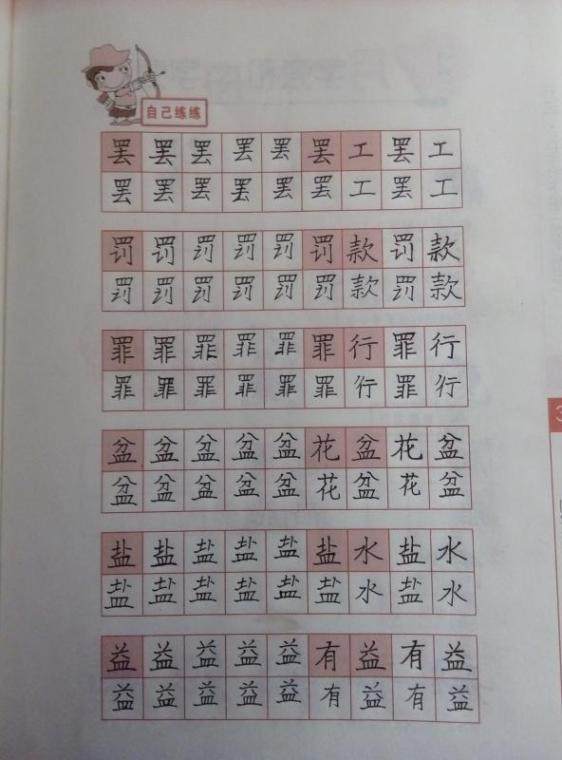 自己练练
罢罢罢罢罢罢工罢工
罢罢罢罢罢罢工罢工
罚罚罚罚罚罚款罚款
罚罚罚罚罚罚款罚款
罪罪罪罪罪罪行罪行
罪罪罪罪罪罪行罪行
盆盆盆盆盆花盆花盆
盆盆盆盆盆花盆花盆
盐盐盐盐盐盐水盐水
盐盐盐盐盐盐水盐水
益益益益益有益有益
益益益益益有益有益